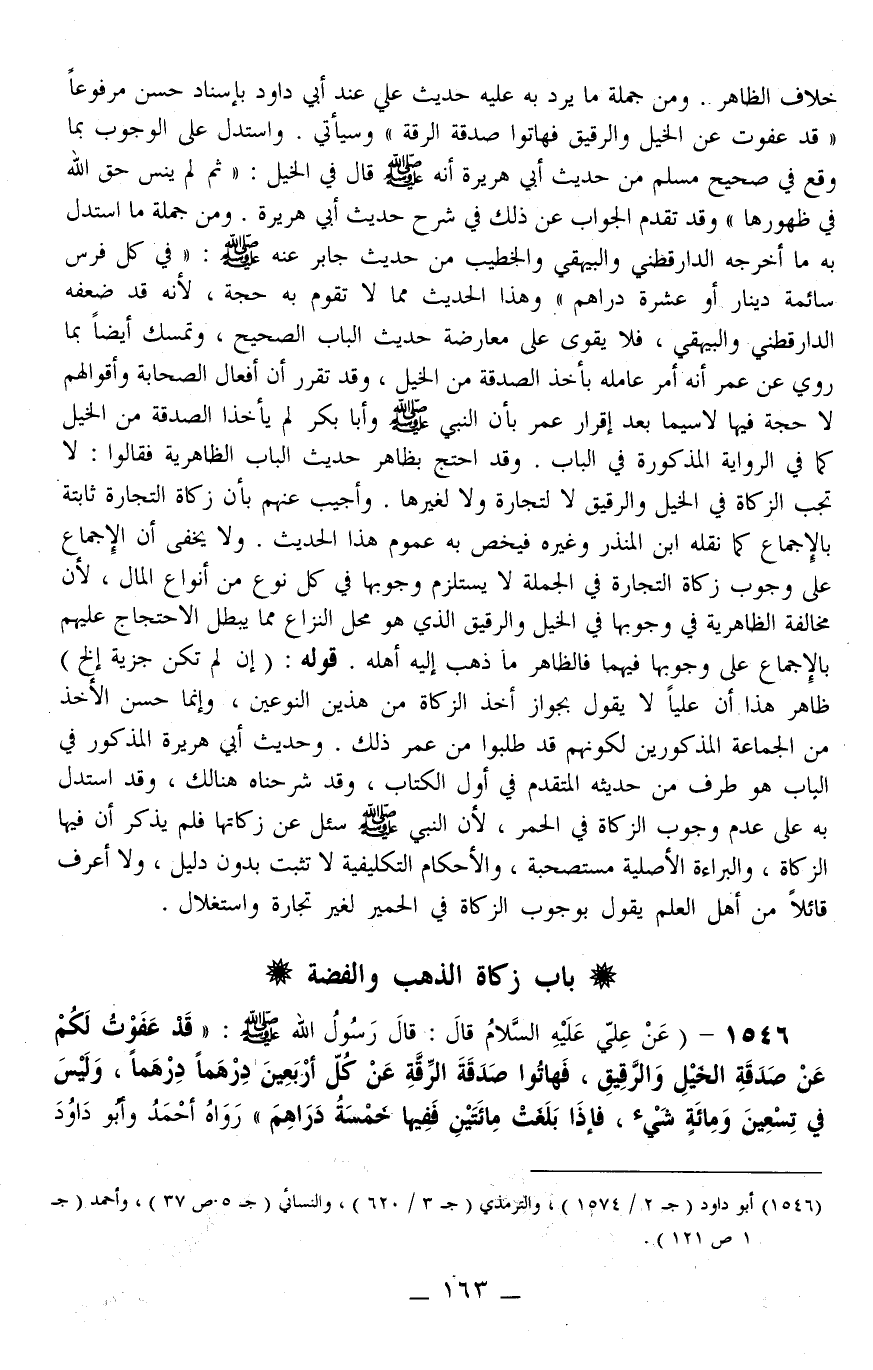 خلاف الظاهر . ومن جملة ما يرد به عليه حديث علي عند أبي داود بإسناد حسن مرفوعاً
« قد عفوت عن الخيل والرقيق فهاتوا صدقة الرقة » وسيأتي . واستدل على الوجوب بما
وقع في صحيح مسلم من حديث أبي هريرة أنه ﷺ قال في الخيل : « ثم لم ينس حق الله
في ظهورها » وقد تقدم الجواب عن ذلك في شرح حديث أبي هريرة . ومن جملة ما استدل
به ما أخرجه الدارقطني والبيهقي والخطيب من حديث جابر عنه ﷺ : « في كل فرس
سائمة دينار أو عشرة دراهم » وهذا الحديث مما لا تقوم به حجة ، لأنه قد ضعفه
الدارقطني والبيهقي ، فلا يقوى على معارضة حديث الباب الصحيح ، وتمسك أيضاً بما
روي عن عمر أنه أمر عامله بأخذ الصدقة من الخيل ، وقد تقرر أن أفعال الصحابة وأقوالهم
لا حجة فيها لاسيما بعد إقرار عمر بأن النبي ﷺ وأبا بكر لم يأخذا الصدقة من الخيل
كما في الرواية المذكورة في الباب . وقد احتج بظاهر حديث الباب الظاهرية فقالوا : لا
تجب الزكاة في الخيل والرقيق لا لتجارة ولا لغيرها . وأجيب عنهم بأن زكاة التجارة ثابتة
بالإجماع كما نقله ابن المنذر وغيره فيخص به عموم هذا الحديث . ولا يخفى أن الإجماع
على وجوب زكاة التجارة في الجملة لا يستلزم وجوبها في كل نوع من أنواع المال ، لأن
مخالفة الظاهرية في وجوبها في الخيل والرقيق الذي هو محل النزاع مما يبطل الاحتجاج عليهم
بالإجماع على وجوبها فيهما فالظاهر ما ذهب إليه أهله . قوله : ( إن لم تكن جزية إلخ )
ظاهر هذا أن علياً لا يقول بجواز أخذ الزكاة من هذين النوعين ، وإنما حسن الأخذ
من الجماعة المذكورين لكونهم قد طلبوا من عمر ذلك . وحديث أبي هريرة المذكور في
الباب هو طرف من حديثه المتقدم في أول الكتاب ، وقد شرحناه هنالك ، وقد استدل
به على عدم وجوب الزكاة في الحمر ، لأن النبي ﷺ سئل عن زكاتها فلم يذكر أن فيها
الزكاة ، والبراءة الأصلية مستصحبة ، والأحكام التكليفية لا تثبت بدون دليل ، ولا أعرف
قائلاً من أهل العلم يقول بوجوب الزكاة في الحمير لغير تجارة واستغلال .
باب زكاة الذهب والفضة
١٥٤٦ - ( عَنْ عِلِيّ عَلَيْهِ السَّلامُ قالَ : قالَ رَسُولُ الله ﷺ : « قَدْ عَفَوْتُ لَكُمْ
عَنْ صَدَقَةِ الخَيْلِ وَالرَّقِيقِ ، فَهاتُوا صَدَقَةَ الرِّقَّةِ عَنْ كُلّ أرْبَعِينَ دِرْهَماً دِرْهَماً ، وَلَيْسَ
في تِسْعِينَ وَمِائَةٍ شَيْءٌ ، فإذَا بَلَغَتْ مِائَتَيْنِ فَفِيها خَمْسَةُ دَرَاهِمَ » رَوَاهُ أحْمَدُ وأبُو دَاوُدَ
(١٥٤٦) أبو داود ( جـ ٢ / ١٥٧٤ ) ، والترمذي ( جـ ٣ / ٦٢٠ ) ، والنسائي ( جـ ٥ ص ٣٧ ) ، وأحمد ( جـ
١ ص ١٢١ ) .
ـ ١٦٣ ـ